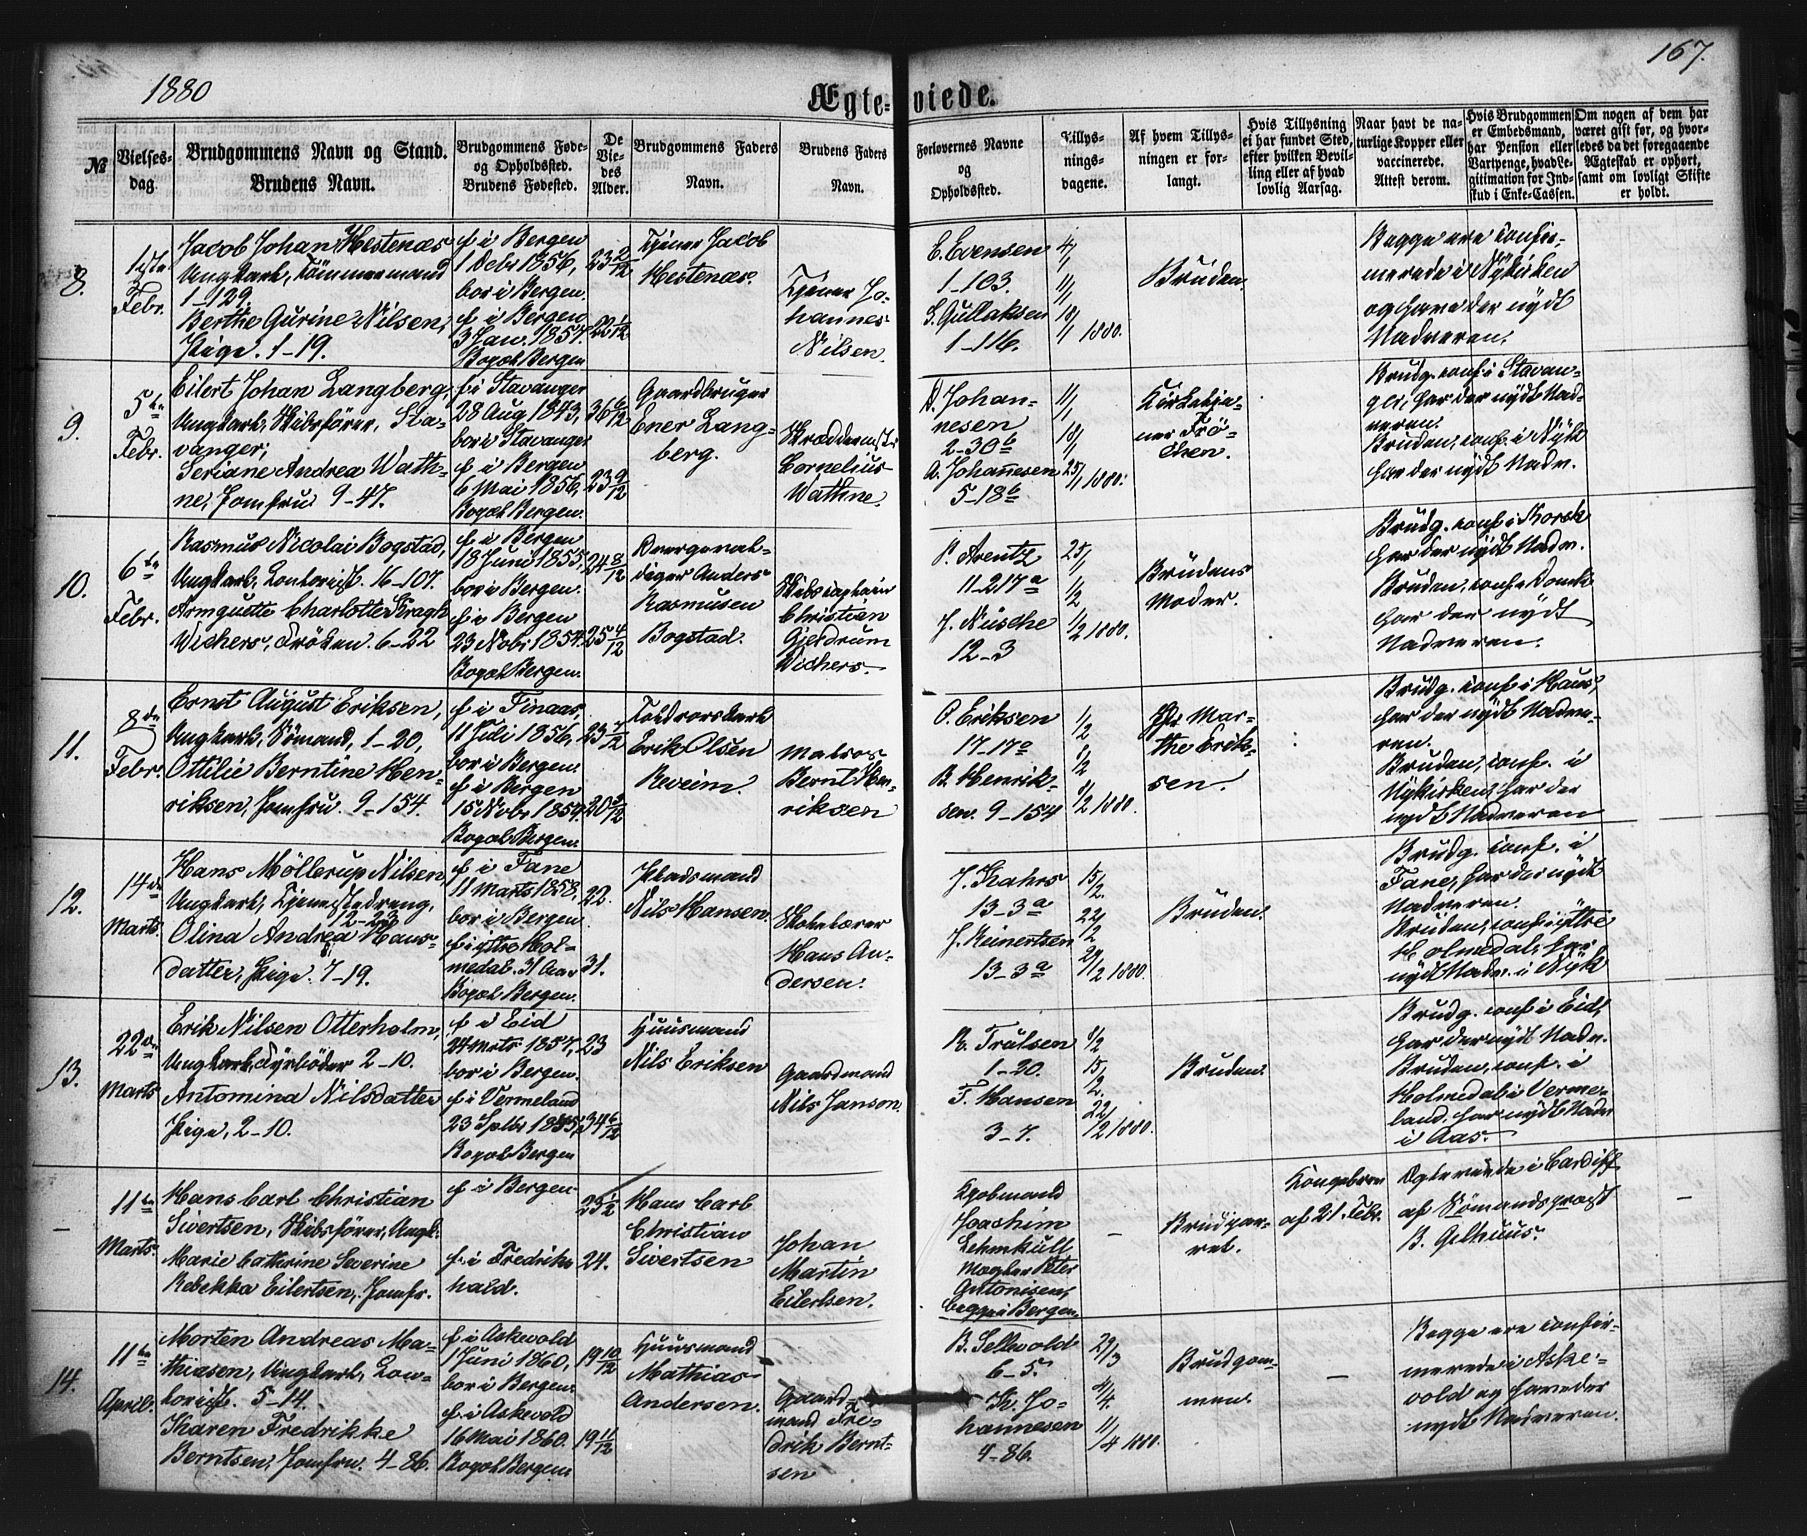 1880
167.
Ægteviede.
№
Vielses-
dag.
Brudgommens Navn og Stand.
Brudens Navn.
Brudgommens Føde-
og Opholdssted.
Brudens Fødested.
De
Vie-
des
Alder.
Brudgommens Faders
Navn.
Brudens Faders
Navn.
Forlovernes Navne
og
Opholdssted.
Tillys-
nings-
dagene.
Af hvem Tillys-
ningen er for-
langt.
Hvis Tillysning
ei har fundet Sted,
efter hvilken Bevil-
ling eller af hvad
lovlig Aarsag.
Naar havt de na-
turlige Kopper eller
vaccinerede.
Attest derom.
Hvis Brudgommen
er Embedsmand,
har Pension eller
Vartpenge, hvad Le-
gitimation for Ind-
skud i Enke-Cassen.
Om nogen af dem har
været gift før, og hvor-
ledes da det foregaaende
Ægteskab er ophørt,
samt om lovligt Skifte
er holdt.
8.
1ste
Febr.
Jacob Johan Hestenæs
Ungkarl, Tömmermand
1-129.
Berthe Gurine Nilsen,
Pige. 1-19.
f i Bergen
1 Debr 1856,
bor i Bergen.
f i Bergen
3 Jan. 1857.
Bopæl Bergen
23 2/12
22 1/12
Tjener Jacob
Hestenæs.
Tjener Jo-
hannes
Nilsen.
E. Evensen
1-103.
S. Gullaksen
1-116.
4/1
11/1
18/1 1880.
Bruden
Begge ere confir-
merede i Nykirken
og have der nydt
Nadveren.
9.
5te
Febr.
Eilert Johan Langberg,
Ungkarl, Skibsförer, Sta-
vanger;
Seriane Andrea Wath-
ne, Jomfru 9-47.
f i Stavanger
28 Aug 1843,
bor i Stavanger
f i Bergen
6 Mai 1856,
Bopæl Bergen.
36 6/12
23 9/12
Gaardbruger
Ener Lang-
berg.
Skræddermstr
Cornelius
Wathne
D. Johan-
nesen
2-30b
A. Johannesen
5-18b
11/1
18/1
25/1 1880.
Kirketje-
ner Frö-
chen.
Brudg. conf i Stavan-
ger, har der nydt Nad-
veren.
Bruden, conf. i Nyk
har der nydt Nadv.
10.
6te
Febr.
Rasmus Nicolai Bogstad,
Ungkarl, Contorist. 16-107.
Armguette Charlotte Kragh
Wichers, Fröken. 6-22
f i Bergen
18 Juni 1855,
bor i Bergen.
f i Bergen
23 Novbr 1854.
Bopæl Bergen.
24 8/12
25 4/12
Anders
Rasmusen
Bogstad.
Skibscaptain
Christian
Gjerdrum
Wichers
P. Arentz
11-217a
J. Nüsche
12-3
25/1
1/2
1/2 1880.
Brudens
Moder.
Brudg. conf i Korsk
har der nydt Nadv.
Bruden, conf i Domk
har der nydt
Nadveren.
11.
8de
Febr.
Ernst August Eriksen,
Ungkarl, Sömand, 1-20,
Ottilie Berntine Hen-
riksen, Jomfru. 9-154.
f i Finaas,
11 Juli 1856,
bor i Bergen.
f i Bergen
15 Novbr 1859
Bopæl Bergen.
23 7/12
20 2/12
Toldrorskarl
Erik Olsen
Matros
Bernt Hen-
riksen
O. Eriksen
17-17a
B. Henrik-
sen. 9-154
1/2
8/2 1880.
Mar-
the Erik-
sen.
Brudg. conf i Haus,
har der nydt Nadve-
ren.
Bruden, conf. i
Nykirken, har der
nydt Nadveren
12.
14de
Marts.
Hans Möllerup Nilsen
Ungkarl, Tjenestedreng,
12-23
Olina Andrea Hans-
datter, Pige. 7-19.
f i Fane
11 Marts 1858,
bor i Bergen.
f i ytre Hol-
medal. 31 Aar
Bopæl Bergen.
22.
31.
Pladsmand
Nils Hansen.
Skolelærer
Hans An-
dersen.
J. Kahrs
13-3a
J. Reinertsen
13-3a
15/2
22/2
29/2 1880.
Bruden.
Brudg. conf. i
Fane, har der nydt
Nadveren.
Bruden, conf i yttre
Holmedal, har
nydt Nadv. i Nyk
13.
22de
Marts
Erik Nilsen Otterholm,
Ungkarl, Fyrböder 2-10.
Antomina Nilsdatter
Pige, 2-10.
f i Eid
24 Mrts 1857,
bor i Bergen.
f i Vermeland
23 Septbr 1845,
Bopæl Bergen
23
34 6/12
Huusmand
Nils Eriksen
Gaardmand
Nils Janson.
R. Trulsen
1-20.
F. Hansen
3-7.
8/2
15/2.
22/2 1880.
Bruden.
Brudg. conf i Eid,
har der nydt Nadv.
Bruden, conf. i
Holmedal i Verme-
land. har nydt Nadv
i Aas.
-
11te
Marts.
Hans Carl Christian
Sivertsen, Skibsförer, Ungk.
Marie Cathrine Severine
Rebekka Eilertsen, Jomfr.
f i Bergen
f. i Fredriks
hald.
35 1/2
24.
Hans Carl
Christian
Sivertsen
Johan
Martin
Eilertsen.
Kjöbmand
Joachim
Lehmkull
Mægler Peter
Antonisen,
begge i Bergen.
-
Brudpar-
ret.
Kongebrev
af 21. Febr.
Ægteviede i Cardiff
af Sömandspræst
B. Gelhuus.
-
14.
11te
April.
Morten Andreas Ma-
thiasen, Ungkarl, Con-
torist. 5-14.
Karen Fredrikke
Berntsen, Jomfru. 4-86.
f i Askevold
1 Juni 1860,
bor i Bergen.
f. i Askevold
16 Mai 1860.
Bopæl Bergen.
19 10/12
19 11/12
Huusmand
Mathias
Andersen.
Gaard-
mand Fre-
drik Bernt-
sen
B. Sellevold
6-5.
K. Jo-
hannesen
4-86.
29/3
4/4.
11/4 1880.
Brudgom-
men.
-
Begge ere confir-
merede i Aske-
vold og have der
nydt Nadveren.